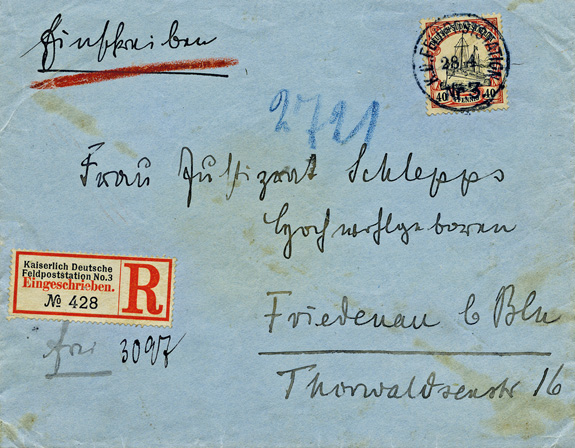 Einschreiben
K.D. FELDPOSTSTATION
28.4.
Nr 3
40 PFENNIG 40
2721
Frau Justizrat Schlepps
Hochwohlgeboren
Kaiserlich Deutsche
Feldpoststation No.3
Eingeschrieben.
№ 428
R
Friedenau b Bln
frei 3097
Thorwaldsenstr 16